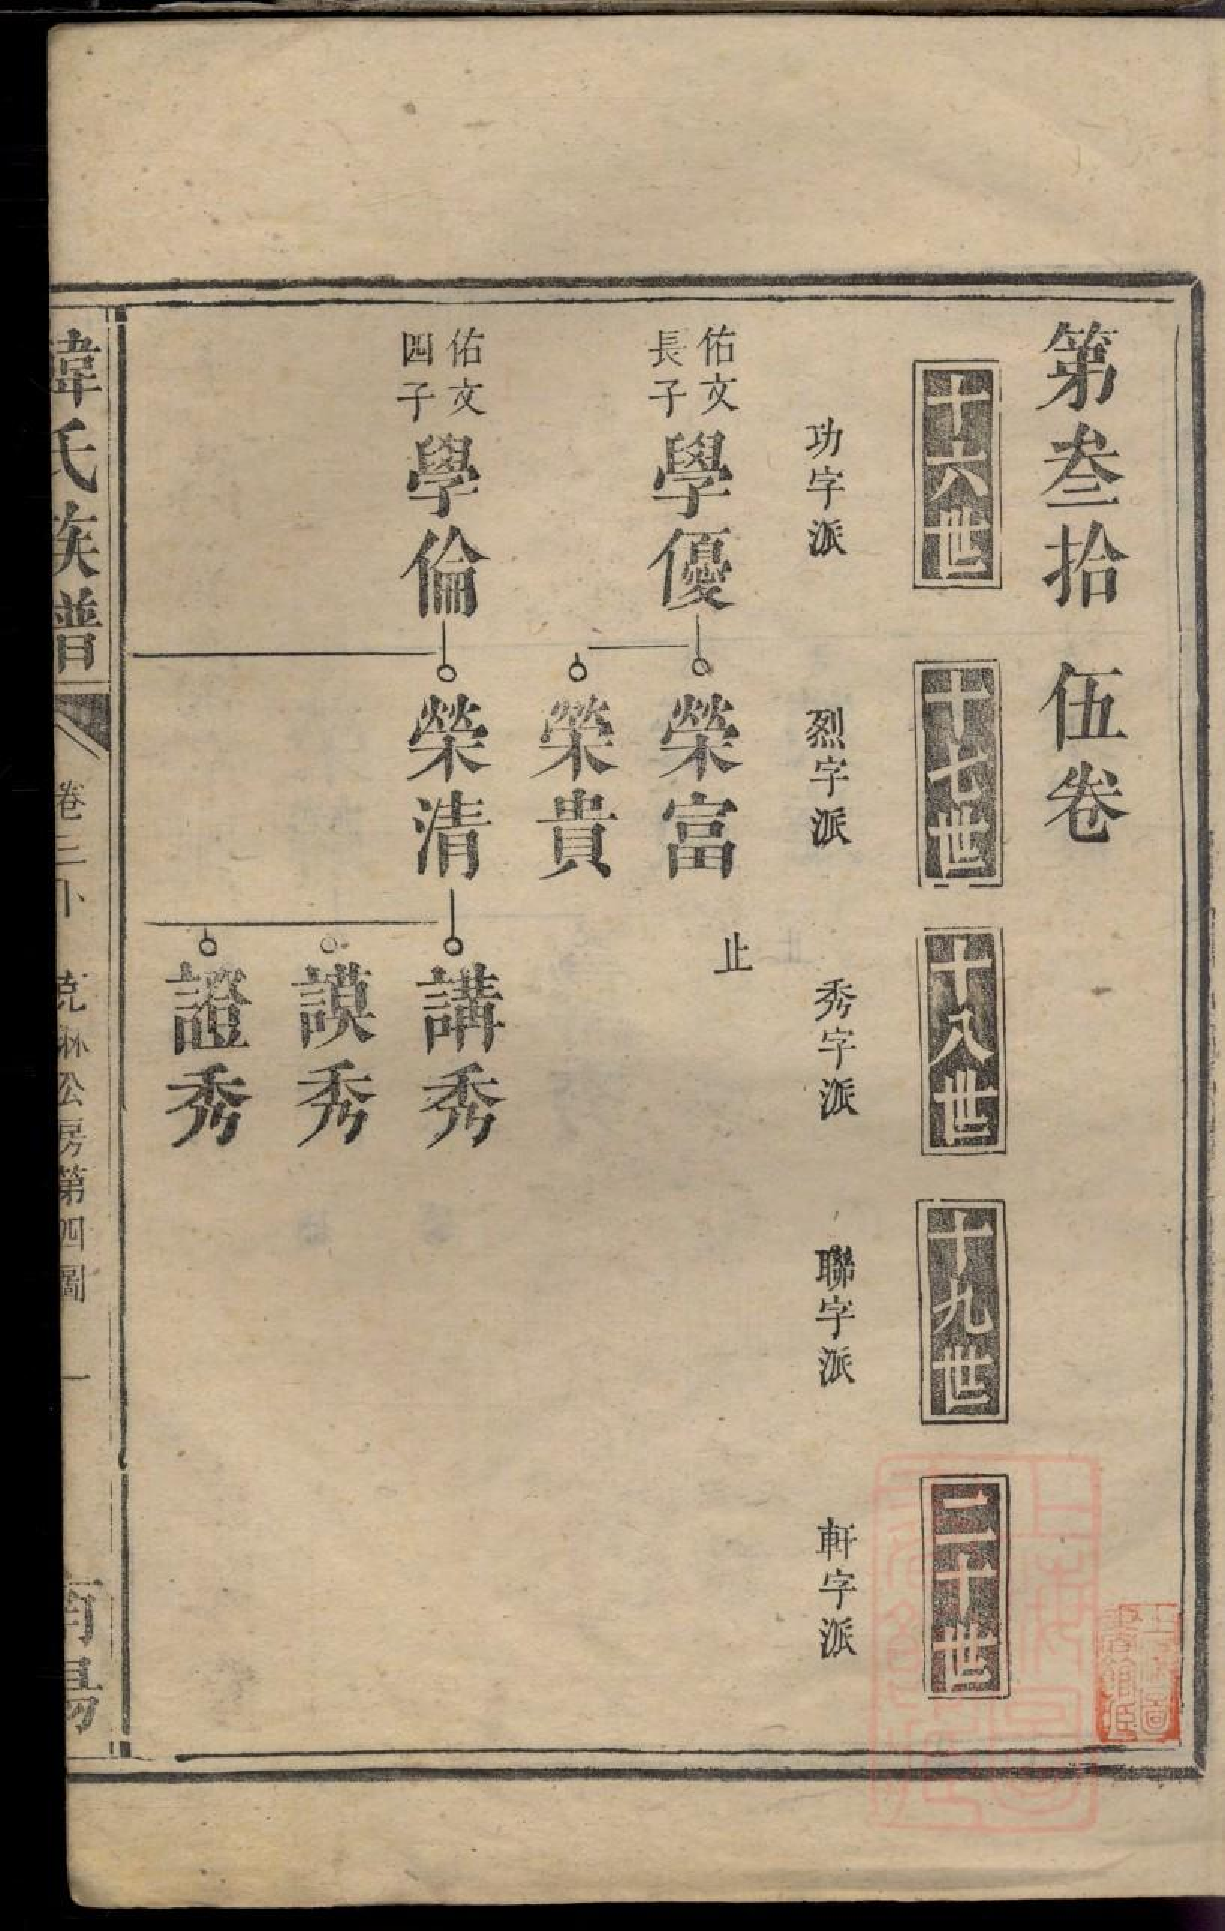 第叁拾伍卷
十六世 十七世 十八世 十九世 二十世
功字派 烈字派 秀字派 聯字派 軒字派
止
佑文
長子
學優 榮富
榮貴
佑文
四子
學倫 榮清 講秀
謨秀
證秀
韓氏族譜 卷三卜 克 公房第四圖 一 南陽